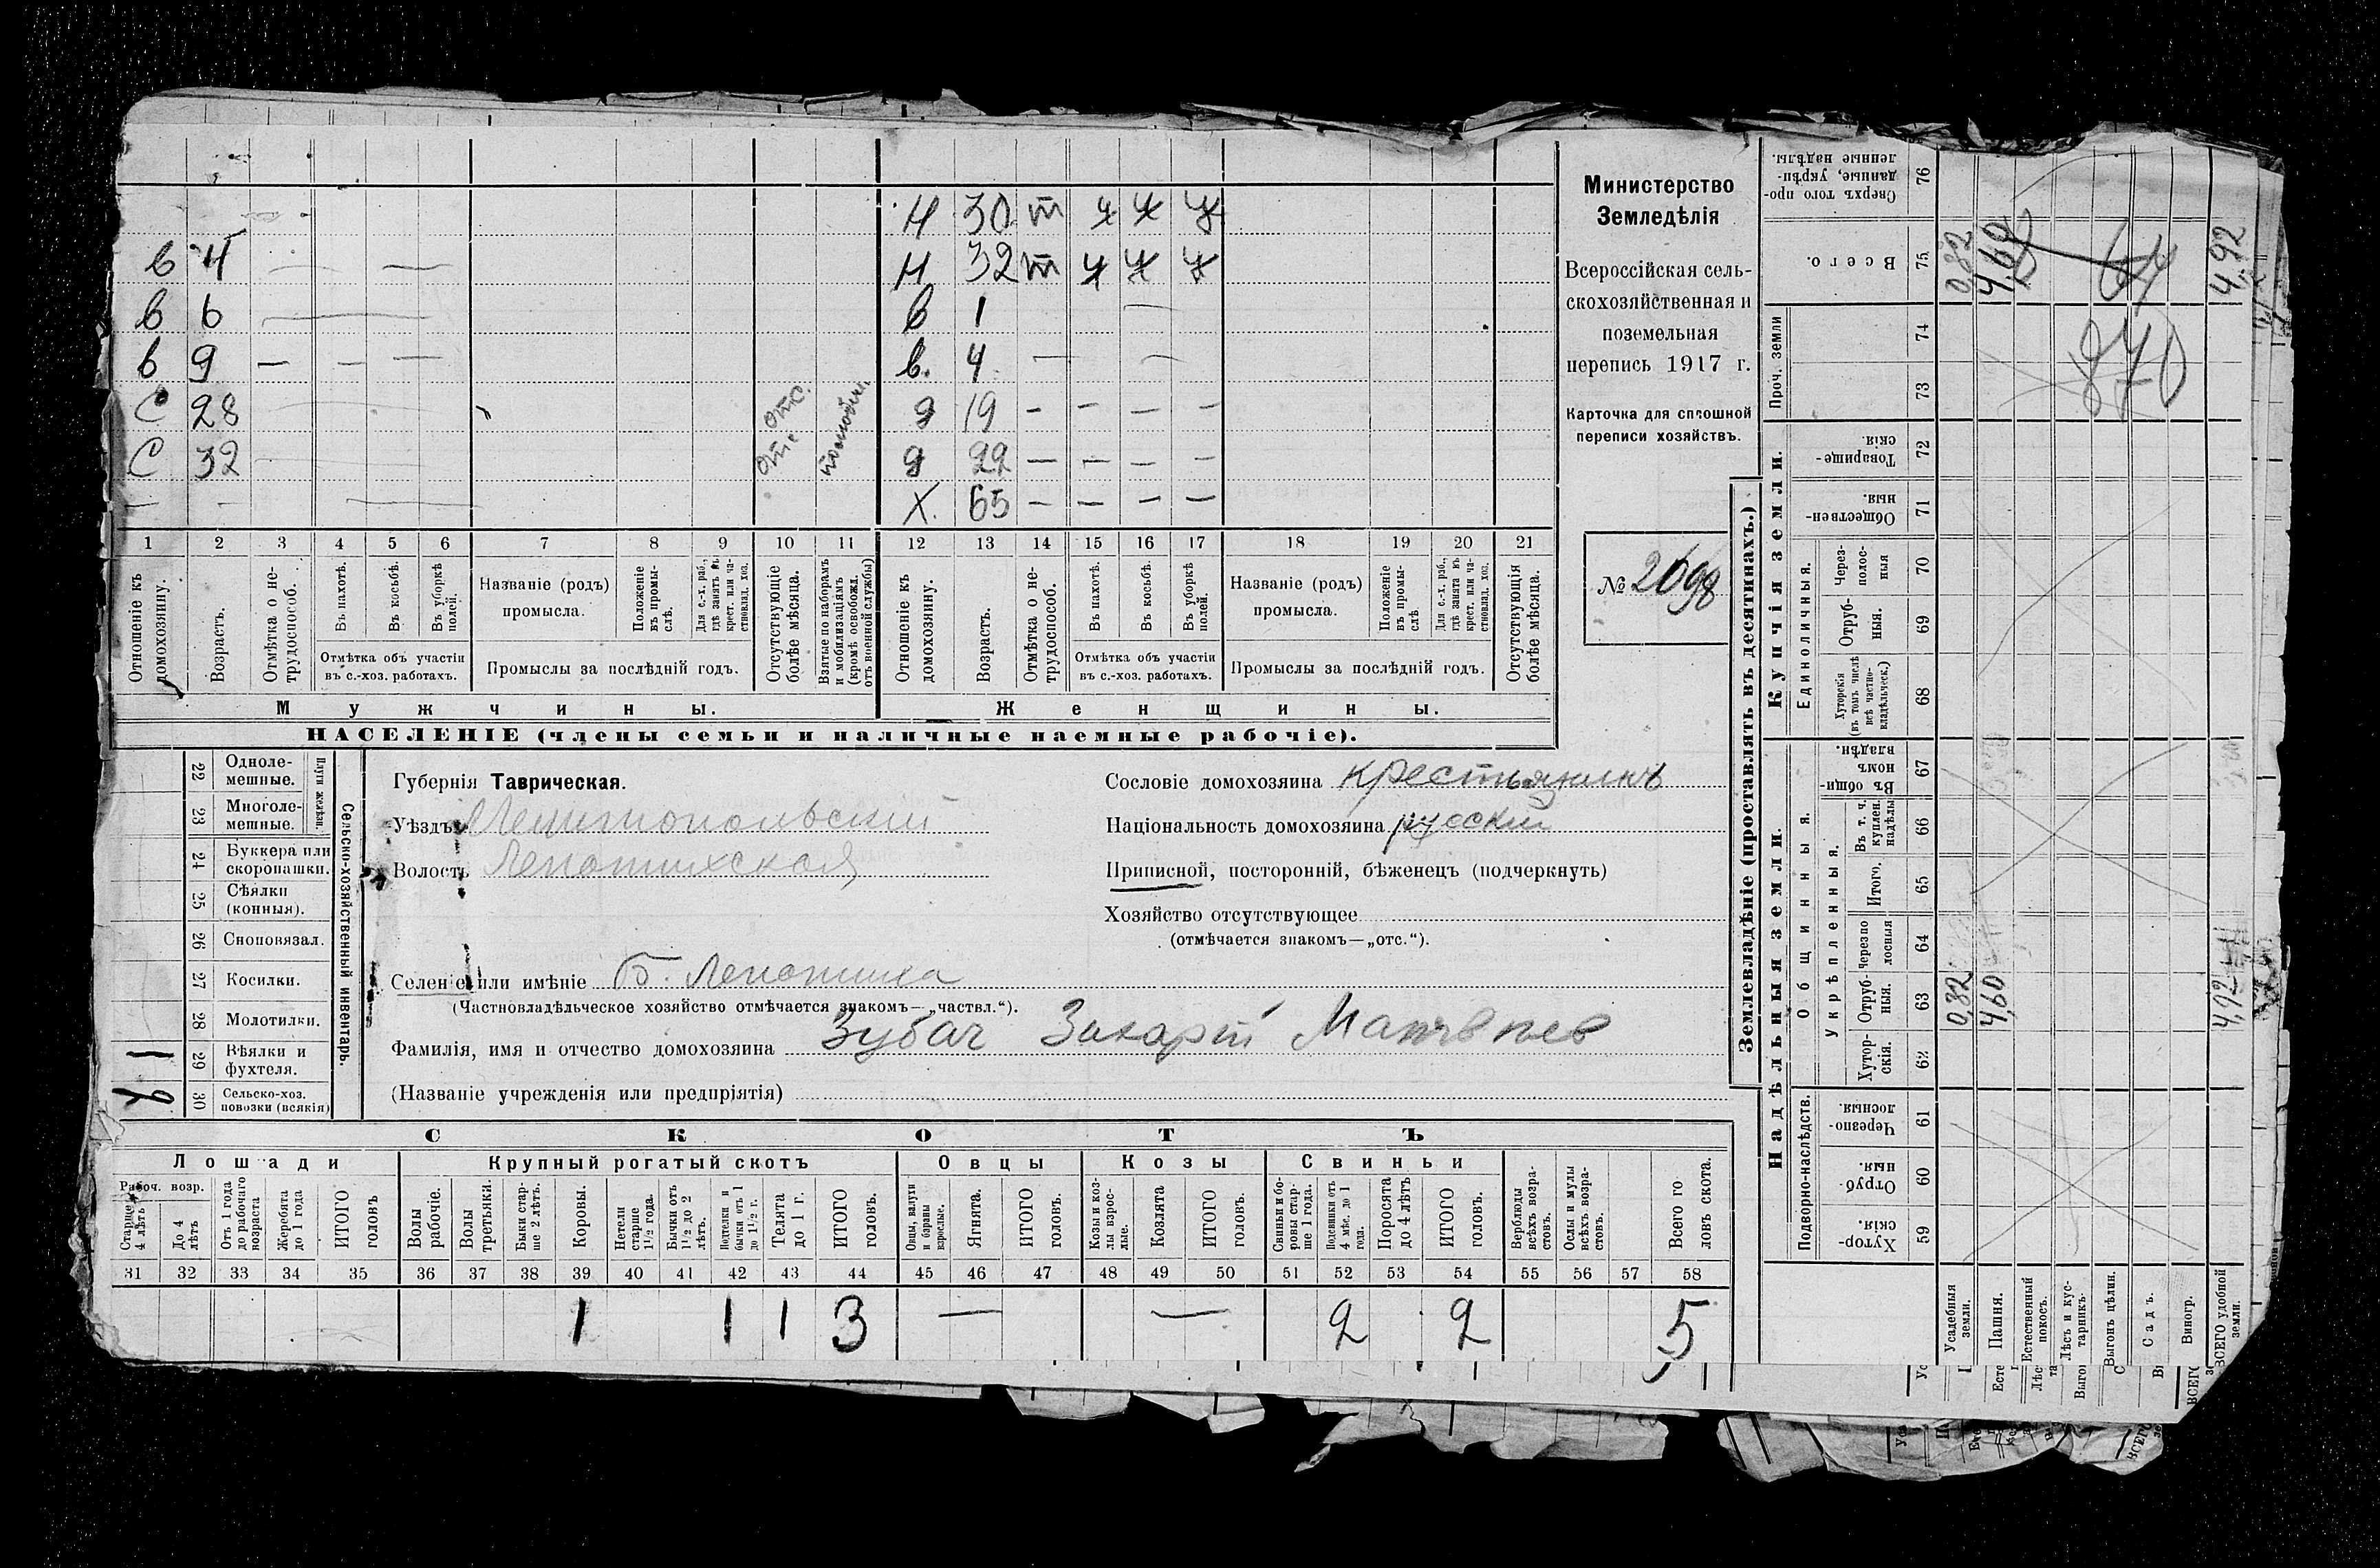 Н 30 т ч ч ч
в 4 — — Н 32 т ч ч ч
в 6 — в 1 —
в 9 — — — в. 4 — —
С 28 отс. д 19 — — — —
С 32 отс д 22 — — — —
— — — Х. 65 — — — —
1 2 3 4 5 6 7 8 9 10 11 12 13 14 15 16 17 18 19 20 21
Отношеніе къ домохозяину.
Возрастъ.
Отмѣтка о нетрудоспособ.
Въ пахотѣ.
Въ косьбѣ.
Въ уборкѣ полей.
Отмѣтка объ участіи въ с.-хоз. работахъ.
Названіе (родъ) промысла.
Положеніе въ промыслѣ.
Для с.-х. раб., гдѣ занятъ въ крест. или частновлад. хоз.
Промыслы за послѣдній годъ.
Отсутствующіе болѣе мѣсяца.
Взятые по наборамъ и мобилизаціямъ (кромѣ освобожд. отъ военной службы)
Отношеніе къ домохозяину.
Возрастъ.
Отмѣтка о нетрудоспособ.
Въ пахотѣ.
Въ косьбѣ.
Въ уборкѣ полей.
Отмѣтка объ участіи въ с.-хоз. работахъ.
Названіе (родъ) промысла.
Положеніе въ промыслѣ
Для с.-х. раб., гдѣ занята въ крест. или частновлад. хоз.
Промыслы за послѣдній годъ.
Отсутствующія болѣе мѣсяца.
Мужчины. Женщины.
НАСЕЛЕНІЕ (члены семьи и наличные наемные рабочіе).
Министерство
Земледѣлія
Всероссійская сель-
скохозяйственная и
поземельная
перепись 1917 г.
Карточка для сплошной
переписи хозяйствъ.
№ 2698
22 Одноле-
мешные.
23 Многоле-
мешные.
Плуги желѣзн.
24 Буккера или
скоропашки.
25 Сѣялки
(конныя).
26 Сноповязал.
27 Косилки.
28 Молотилки.
1 29 Вѣялки и
фухтеля.
30 Сельско-хоз.
повозки (всякія)
Сельско-хозяйственный инвентарь.
Губернія Таврическая.
Уѣздъ Мелитопольскій
Волость Лепатихская
Селеніе или имѣніе Б. Лепатиха
(Частновладѣльческое хозяйство отмѣчается знакомъ—„частвл.“).
Фамилія, имя и отчество домохозяина Зубач Захарій Матвѣев
(Названіе учрежденія или предпріятія)
Сословіе домохозяина крестьянинъ
Національность домохозяина русскій
Приписной, посторонній, бѣженецъ (подчеркнуть)
Хозяйство отсутствующее
(отмѣчается знакомъ—„отс.“).
СКОТЪ
Лошади Крупный рогатый скотъ Овцы Козы Свиньи
Рабоч. возр.
Старше 4 лѣтъ
До 4 лѣтъ
Отъ 1 года до рабочаго возраста
Жеребята до 1 года
ИТОГО головъ
Волы рабочіе.
Волы третьяки.
Быки старше 2 лѣтъ.
Коровы.
Нетели старше 1½ года.
Бычки отъ 1½ до 2 лѣтъ.
Подтелки и бычки отъ 1 до 1½ г.
Телята до 1 г.
ИТОГО головъ.
Овцы, валухи и бараны взрослые.
Ягнята.
ИТОГО головъ.
Козы и козлы взрослые.
Козлята
ИТОГО головъ.
Свиньи и боровы старше 1 года.
Подсвинки отъ 4 мѣс. до 1 года.
Поросята до 4 лѣтъ
ИТОГО головъ.
Верблюды всѣхъ возрастовъ.
Ослы и мулы всѣхъ возрастовъ.
Всего головъ скота.
31 32 33 34 35 36 37 38 39 40 41 42 43 44 45 46 47 48 49 50 51 52 53 54 55 56 57 58
1 1 1 3 — — 2 2 5
Землевладѣніе (проставлять въ десятинахъ.)
Купчія земли.
Надѣльныя земли.
Сверхъ того проданные, укрѣпленные надѣлы. 76
Всего. 75 0,82 4,60 4,92
Проч. земли 74 73
870
Товарищескія. 72
Общественныя. 71
Единоличныя.
Черезполосныя 70
Отрубныя. 69
Хуторскія (въ томъ числѣ всѣ частновладѣльческ.) 68
Общинныя.
Въ общинномъ владѣн. 67
Укрѣпленныя.
Въ т. ч. куплен. надѣлы 66
Итого. 65
Черезполосныя 64
Отрубныя. 63 0,32 4,60 4,92
Хуторскія. 62
Подворно-наслѣдств.
Черезполосныя. 61
Отрубныя. 60
Хуторскія. 59
Усадебныя земли.
Пашня.
Естественный покосъ.
Лѣсъ и кустарникъ.
Выгонъ цѣлин.
Садъ.
Виногр.
ВСЕГО удобной земли.